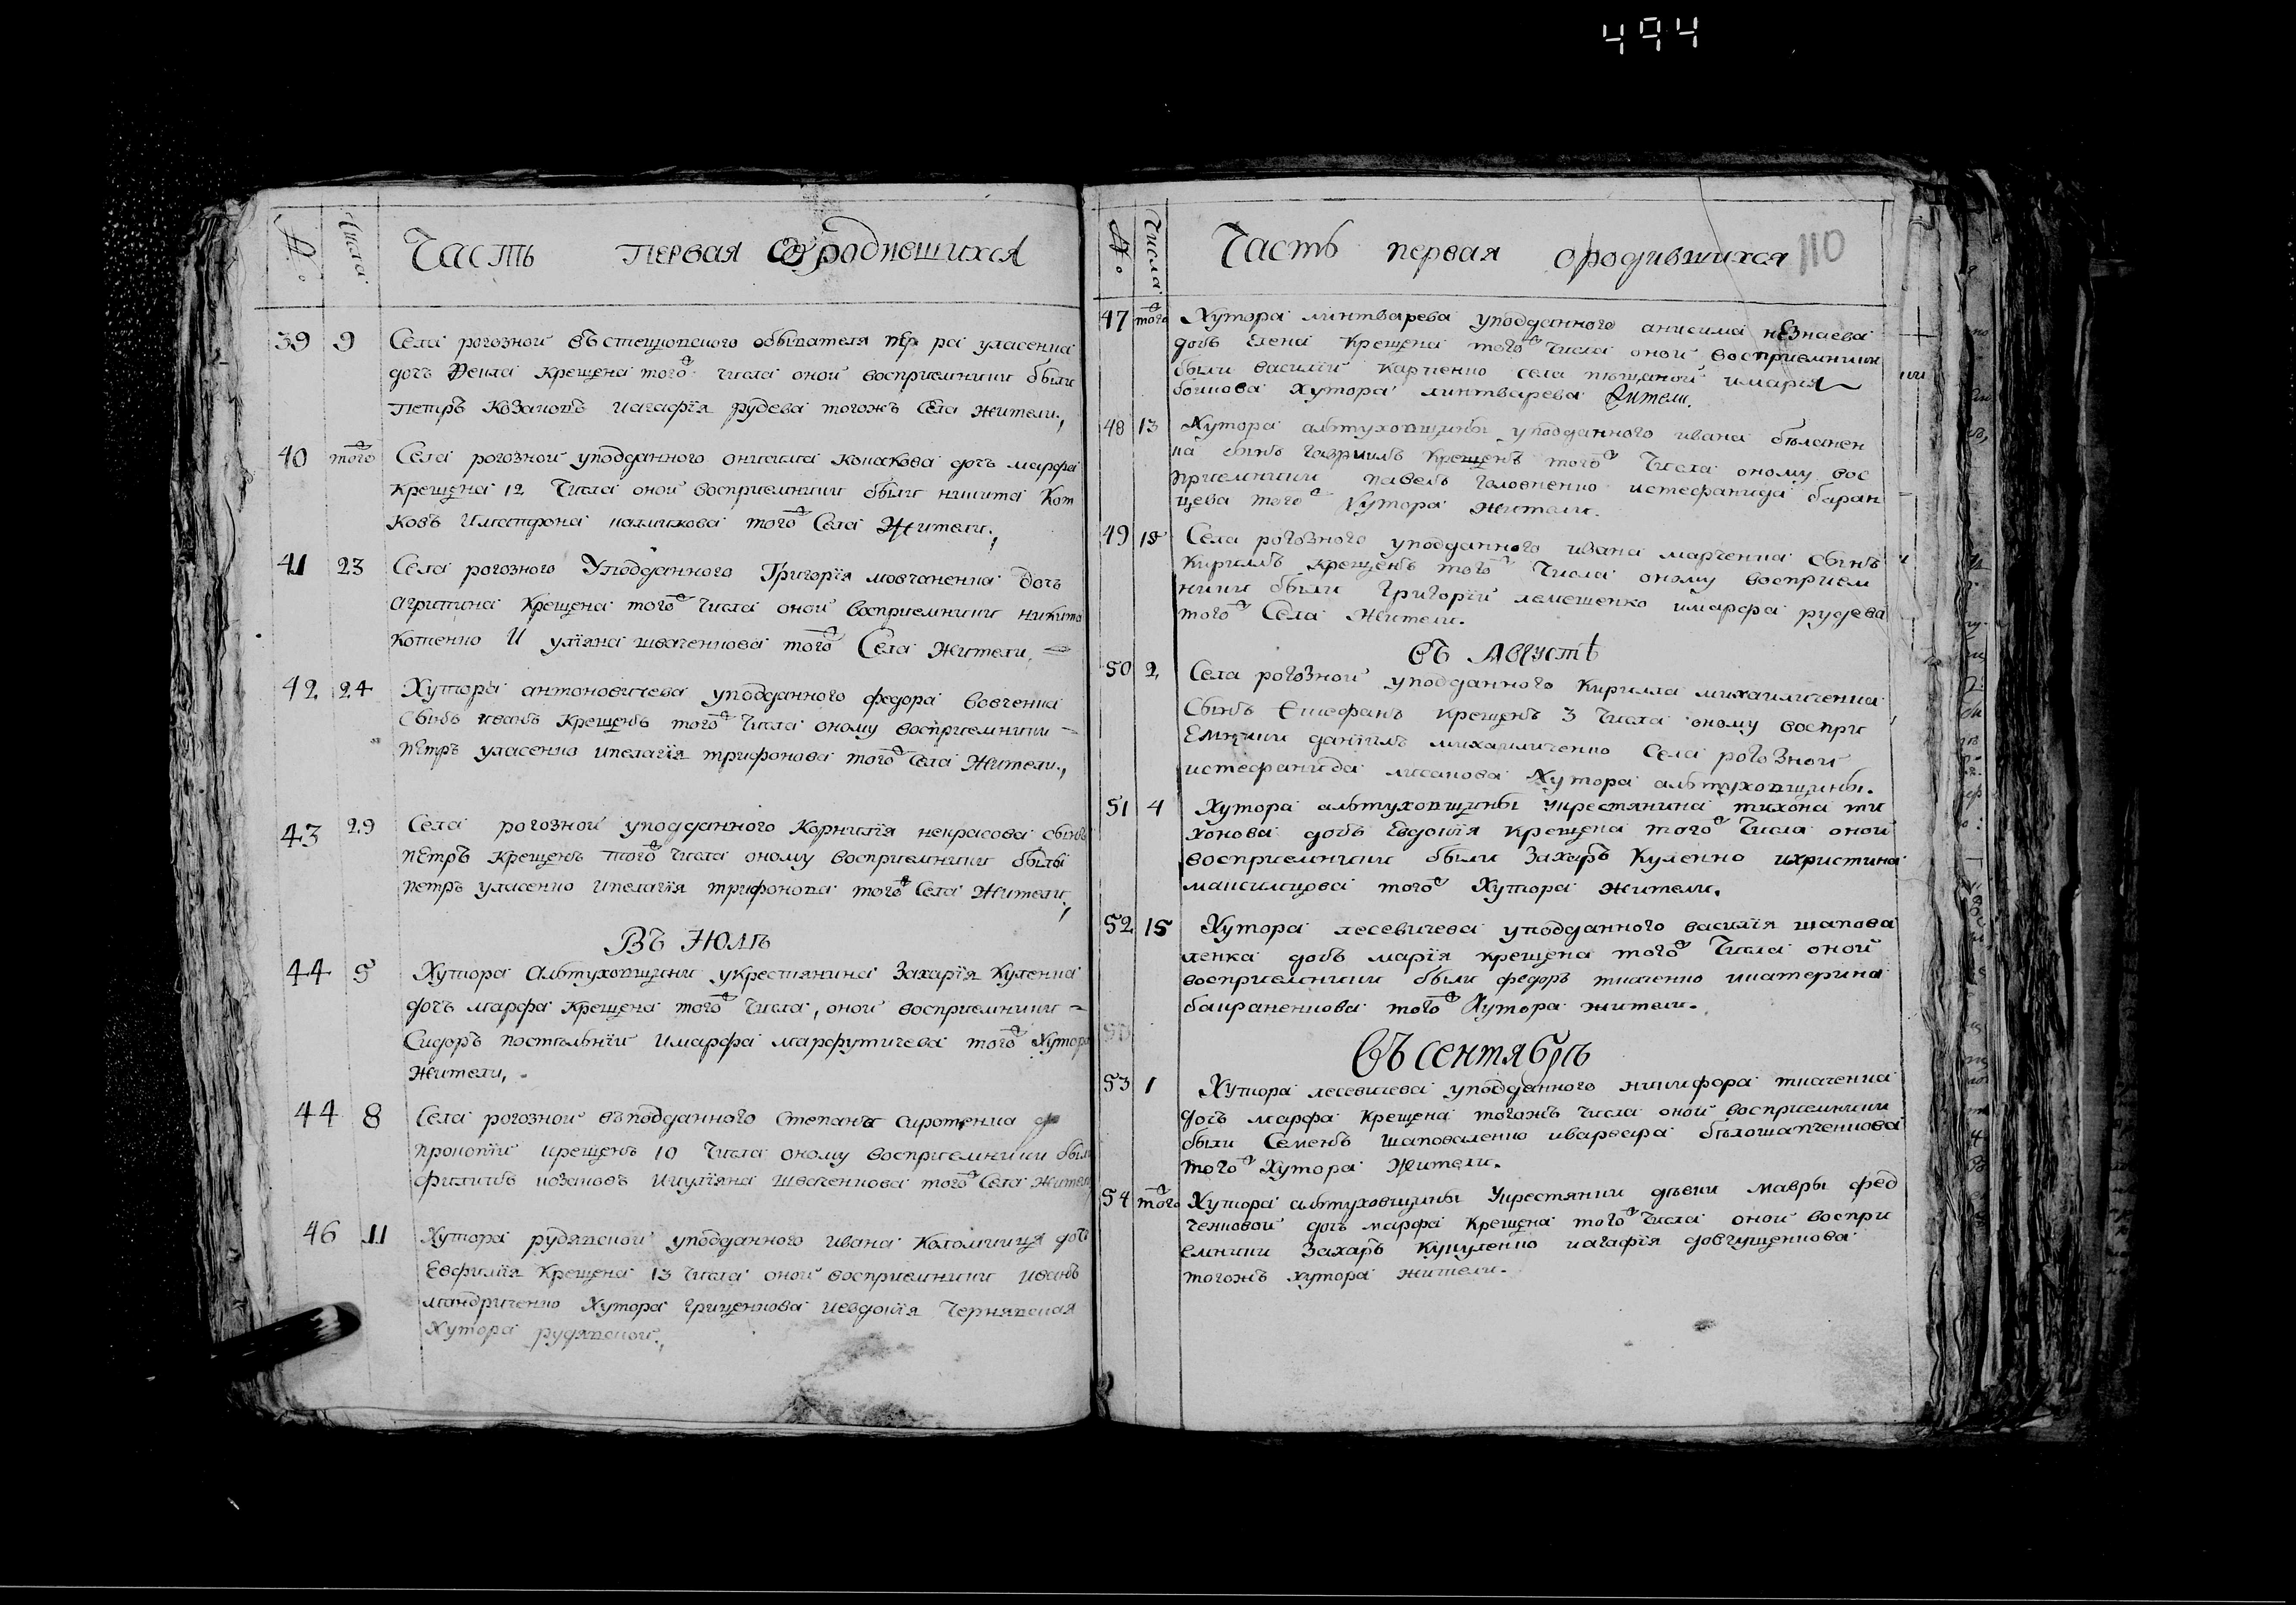 494
№.
Числа.
Часть первая О родившихся
39 9 Села рогозной въ стецковского обывателя уласенка
дочь крещена того ж числа оной восприемники были
Петръ Козаковъ и агафїя рудева тогожъ Села жители,
40 того ж Села рогозной у подданного онисима конакова дочь марфа
крещена 12 Числа оной восприемники были никита Кот
ковъ и матрона того ж Села Жители,
41 23 Села рогозного У подданного Григорїя мовчаненка дочь
агрипина Крещена того ж числа оной восприемники никита
котенко и улїяна шваченкова того ж Села жители.
42 24 Хутора антоновичева у подданного федора вовченка
сынъ иванъ крещенъ того ж Числа оному восприемники
Петръ уласенко и пелагїя трифонова того ж Села Жители,
43 29 Села рогозной у подданного Корнилїя некрасова сынъ
петръ крещенъ того ж числа оному восприемники были
петръ уласенко и пелагїя трифонова того ж Села жители,
Въ Июлѣ
44 5 Хутора Алтуховщини у крестянина Захарїя Куленка
дочь марфа крещена того ж Числа, оной восприемники
Сидоръ постольнїй и марфа марфутичева того ж Хутора
жители,
44 8 Села рогозной въ подданного Степана сиротенка
прокопїй крещенъ 10 Числа оному восприемники были
филипъ козаковъ и иулїяна Шваченкова того ж Села жители
46 11 Хутора рудявской у подданного ивана Коломийця дочь
Евфимїя Крещена 13 Числа оной восприемники иванъ
мандриченко Хутора гриценкова и евдокїя Чернявская
Хутора рудявской,
№.
Числа.
Часть первая о родившихся 110
47 того ж Хутора линтварева у подданного анисима незнаева
дочь Елена крещена того ж числа оной восприемники
были василїй карпенко села пѣщаной и марїя
боинова хутора линтварева жители.
48 13 Хутора алтуховщины у подданного ивана бѣланен
ка сынъ гавриилъ крещенъ того ж Числа оному вос
приемники павелъ головненко и стефанида баран
цева того ж Хутора жители.
49 18 Села рогозного у подданного ивана марченка сынъ
Кириллъ крещенъ того ж Числа оному восприем
ники были Григорїй лемешенко и марфа рудева
того ж Села жители.
Въ Августѣ
50 2 Села рогозной у подданного Кирилла михаиличенка
Сынъ Стефанъ крещенъ 3 Числа оному воспри
емники данїилъ михаиличенко Села рогозной
и стефанида лисакова Хутора алтуховщины.
51 4 Хутора алтуховщины у крестянина тихона ти
хонова дочь Евдокїя крещена того ж Числа оной
восприемники были Захаръ Куленко и христина
максимцова того ж Хутора жители.
52 15 Хутора лесевичева у подданного василїя шапова
ленка дочь марїя крещена того ж Числа оной
восприемники были федоръ ткаченко и катерина
баираненкова того ж Хутора жители.
Въ Сентябрѣ
53 1 Хутора лесевичева у подданного никифора ткаченка
дочь марфа крещена тогожъ числа оной восприемники
были Семенъ Шаповаленко и варвара бѣлошапченкова
того ж Хутора жители.
54 того ж Хутора алтуховщины У крестянки дѣвки мавры фед
ченковой дочь марфа крещена того ж числа оной воспри
емники Захаръ Кукуленко и агафїя довгущенкова
тогожъ хутора жители.